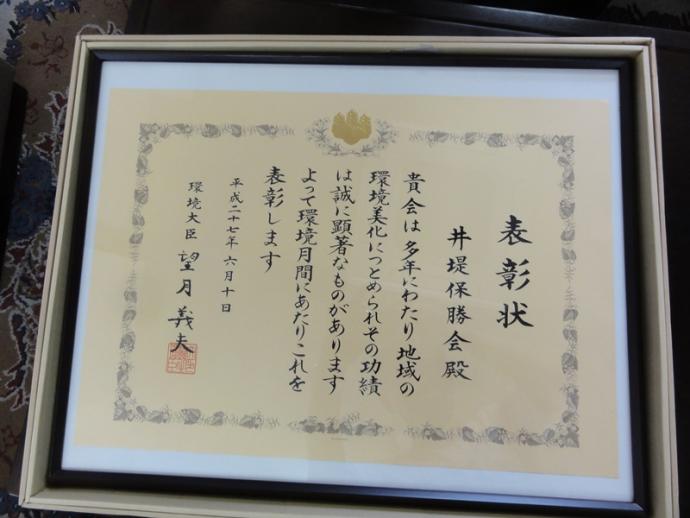 表彰状
井堤保勝会殿
貴会は多年にわたり地域の
環境美化につとめられその功績
は誠に顕著なものがあります
よって環境月間にあたりこれを
表彰します
平成二十七年六月十日
環境大臣 望月義夫